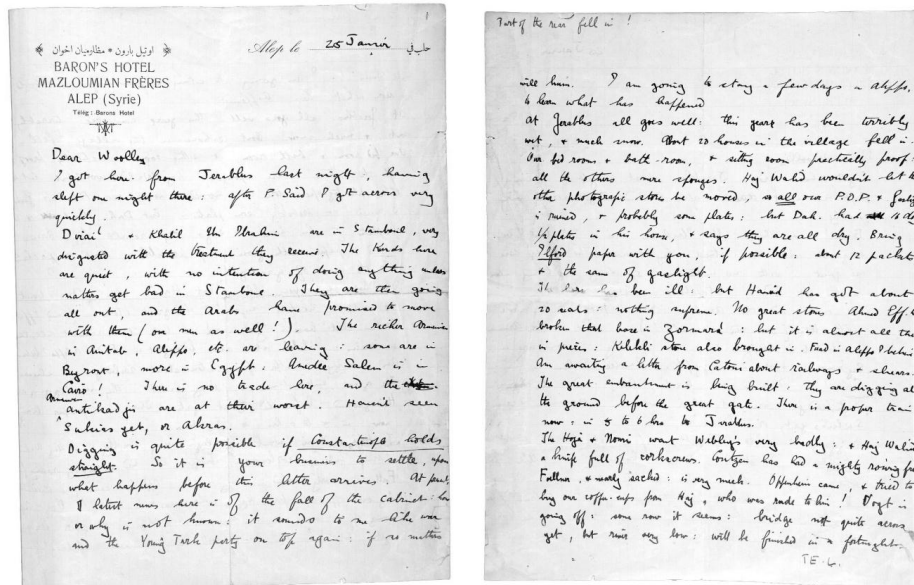 1
اوتيل بارون * مظلوميان اخوان
BARON'S HOTEL
MAZLOUMIAN FRÈRES
ALEP (Syrie)
Télég: Barons Hotel
Alep le 25 Janvier حلب في
Dear Woolley
I got here from Jerablus last night, having
slept one night there: after P. Said I got across very
quickly.
& Khalil Ibn Ibrahim are in Stamboul, very
disgusted with the treatment they receive. The Kurds here
are quiet, with no intention of doing anything unless
matters get bad in Stamboul. They are then going
all out, and the Arabs have promised to move
with them (our men as well!). The richer Armenians
in Aintab, Aleppo, etc. are leaving: some are in
Beyrout, more in Egypt. Amdee Salem is in
Cairo! There is no trade here, and the
antikadjis are at their worst. Haven't seen
yet, or
Digging is quite possible if Constantinople holds
straight. So it is your business to settle, upon
what happens before this letter arrives. At present
latest news here is of the fall of the cabinet: how
or why is not known: it sounds to me like war
and the Young Turk party on top again: if so matters
Part of the rear fell in!
will hum. I am going to stay a few days in Aleppo,
to learn what has happened
At Jerablus all goes well: this year has been terribly
wet, & much snow. About 20 houses in the village fell in.
Our bed rooms & bath-room, & sitting room practically proof:
all the others mere sponges. Haj Wahid wouldn't let the
other photographic stores be moved, so all our P.O.P. & gaslight
is ruined, & probably some plates: but Dah. had 16 doz
1/2 plates in his house, & says they are all dry. Bring
Ilford paper with you, if possible: about 12 packets
& the same of gaslight.
The has been ill: but Hamid has got about
20 seals: nothing supreme. No great stones Ahmed Eff. has
broken that base in Zormara: but it is almost all there
in pieces: stone also brought in. Fuad in Aleppo I believe
Am awaiting a letter from Catoni about railways & shares.
The great embankment is being built: they are digging all
the ground before the great gate. There is a proper train
now: in 5 to 6 hrs. to Jerablus.
The Hoja & want Webley's very badly: & Haj Wahid
a knife full of corkscrews. Contzen has had a mighty rowing from
& nearly sacked: is very meek. Oppenheim came, & tried to
buy our coffee-cups from Haj, who was rude to him! Vogt is
going off: some row it seems: bridge not quite across
yet, but river very low: will be finished in a fortnight.
T.E.L.